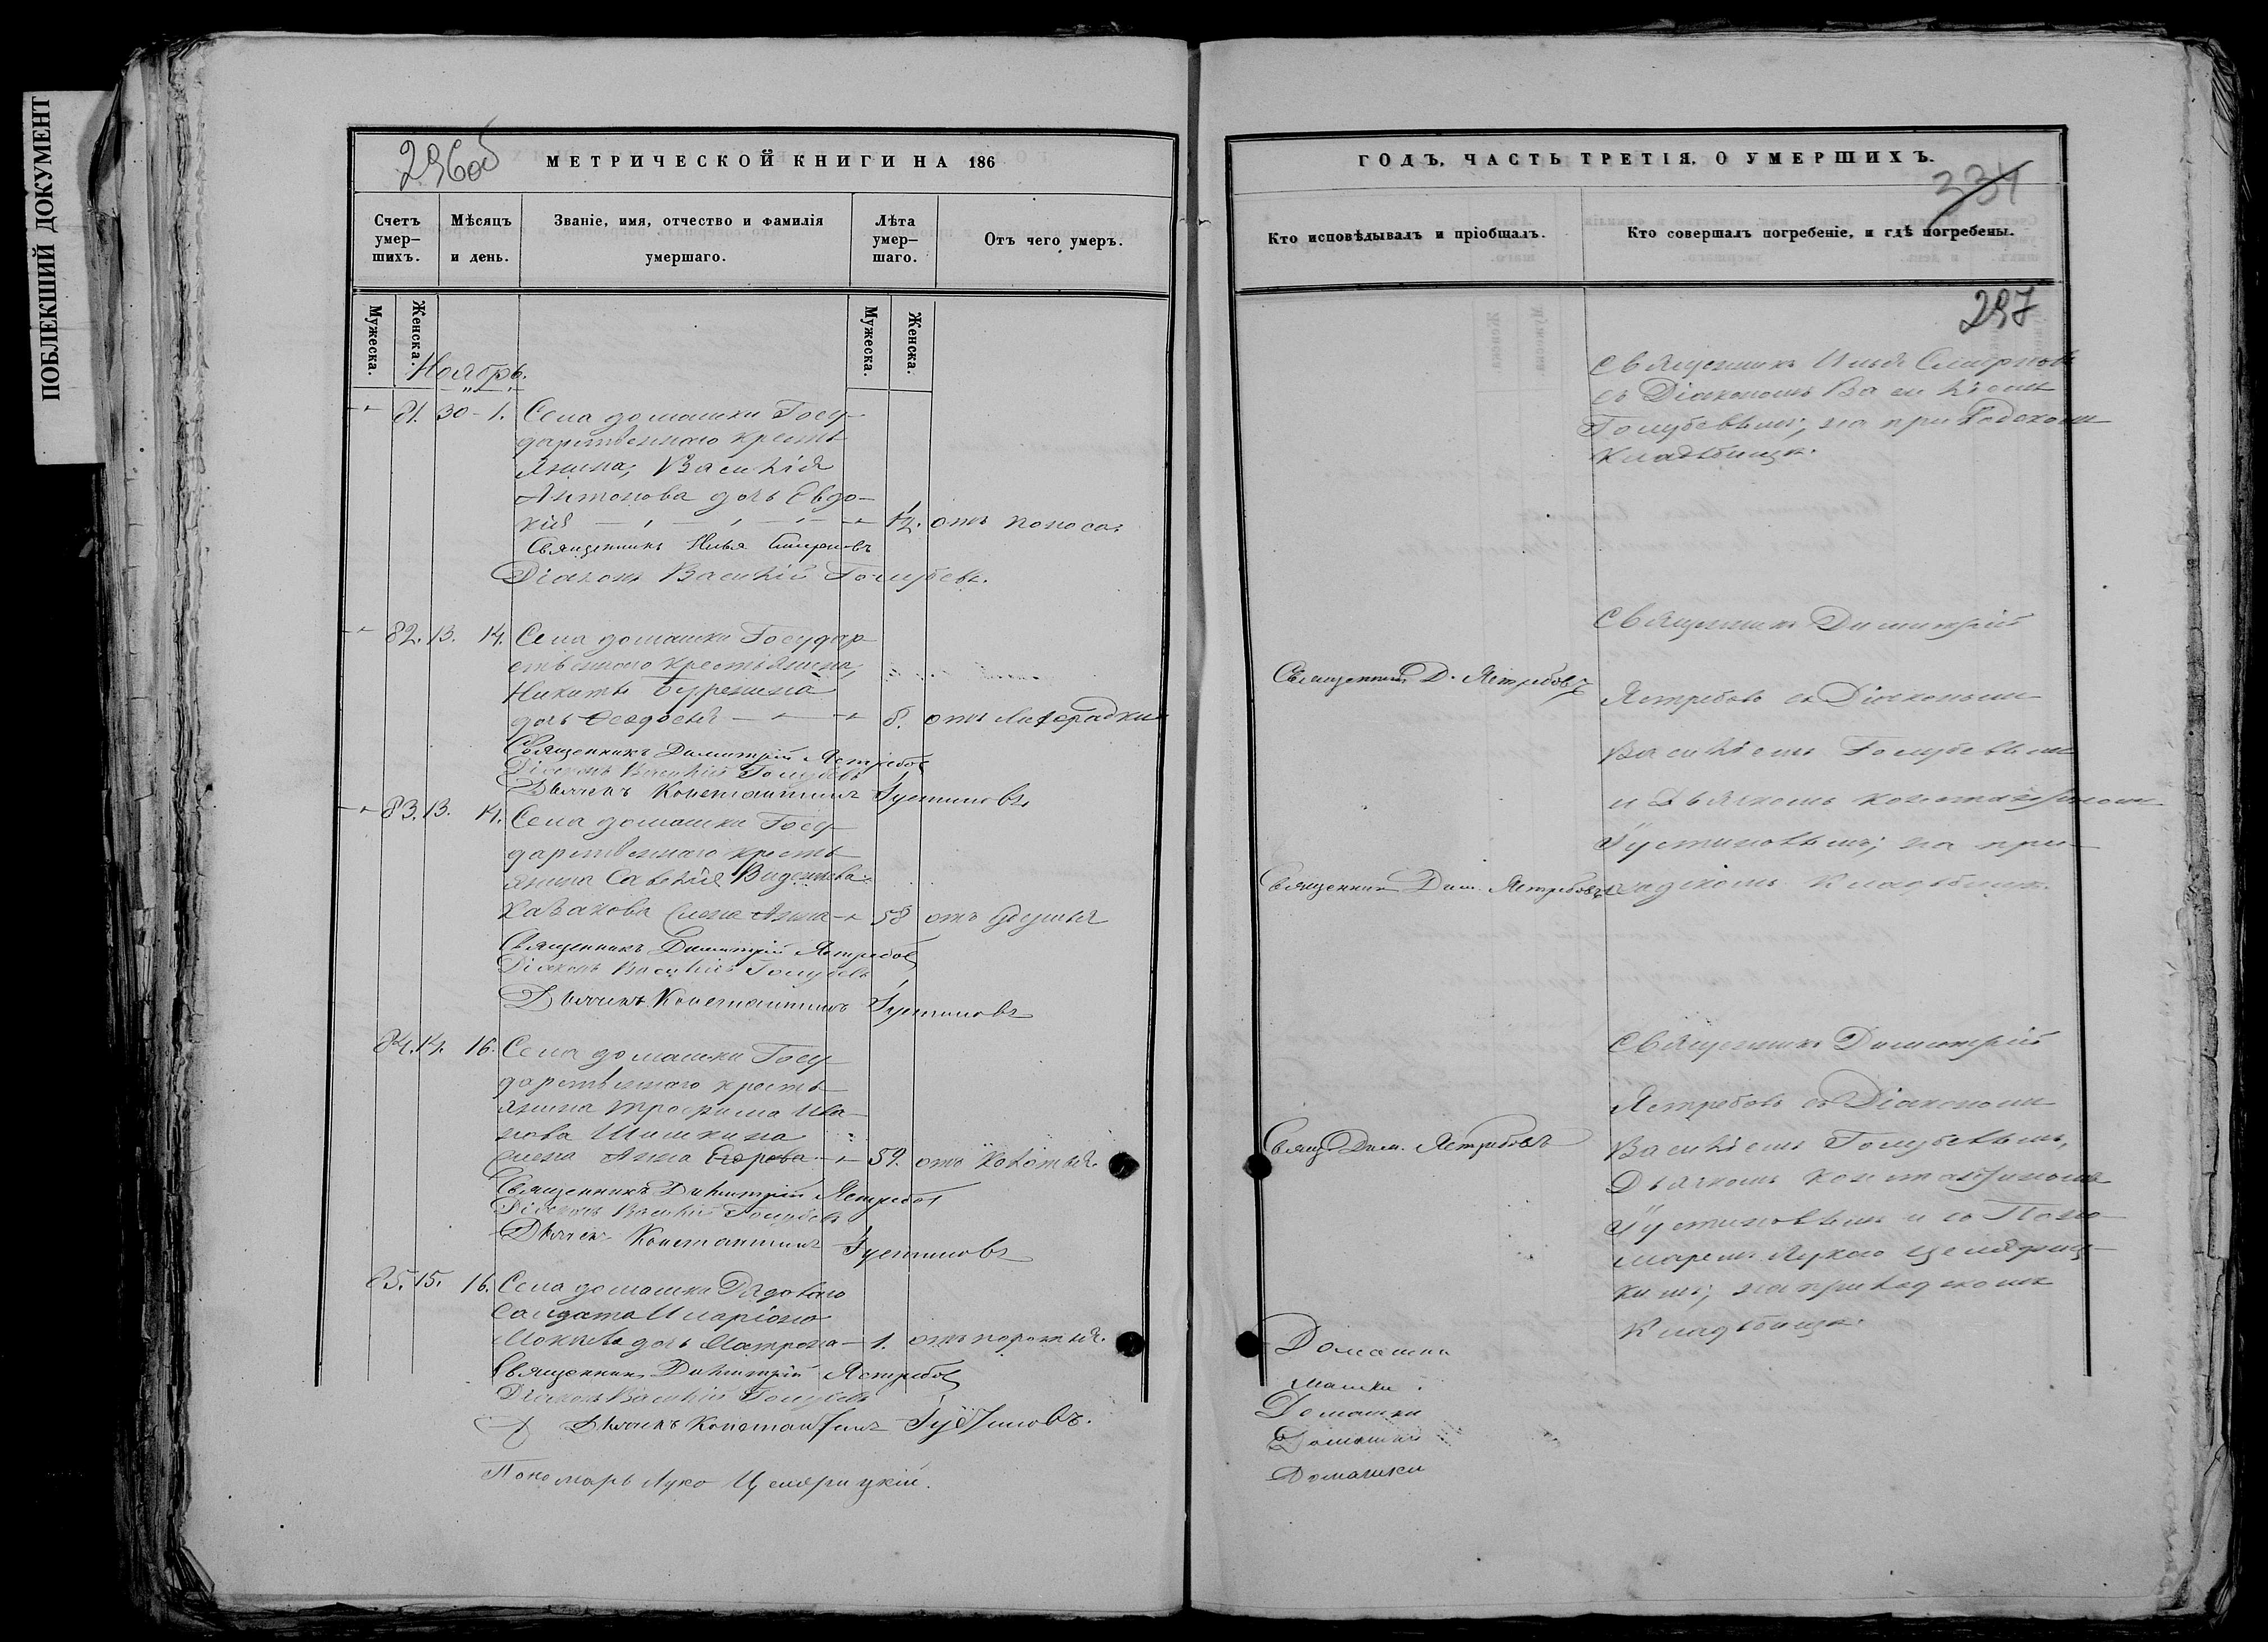 ПОБЛЕКШИЙ ДОКУМЕНТ
296об
МЕТРИЧЕСКОЙ КНИГИ НА 186
Счетъ умер-шихъ.
Мѣсяцъ и день.
Званіе, имя, отчество и фамилія умершаго.
Лѣта умер-шаго.
Отъ чего умеръ.
Мужеска.
Женска.
Мужеска.
Женска.
Ноябрь.
81. 30 - 1. Села домашки Госу-
дарственнаго кресть-
янина, Василія
Антонова дочь Евдо-
кія 1/2. отъ поноса.
Священникъ Илья Смирновъ
Діаконъ Василій Голубевъ.
82. 13. 14. Села домашки Государ-
ственнаго крестьянина,
Никиты
дочь Ѳеодосія 8. отъ лихорадки
Священникъ Димитрій Ястребов
Діаконъ Василій Голубевъ
Дьячекъ Константинъ Густиновъ
83. 13. 14. Села домашки Госу-
дарственнаго кресть-
янина Савелія
Казакова жена Анна 58 отъ удушья
Священникъ Димитрій Ястребов
Діаконъ Василій Голубевъ
Дьячекъ Константинъ Густиновъ
84. 14. 16. Села домашки Госу-
дарственнаго кресть-
янина Трофима Ива-
нова Шишкина
жена Анна Егорова 59. отъ колотья.
Священникъ Димитрій Ястребов
Діаконъ Василій Голубевъ
Дьячекъ Константинъ Густиновъ
85. 15. 16. Села домашки Рядоваго
Солдата Иларіона
дочь Матрона 1. отъ
Священникъ Димитрій Ястребов
Діаконъ Василій Голубевъ
Дьячекъ Константинъ Густиновъ.
Пономарь Лука
ГОДЪ, ЧАСТЬ ТРЕТІЯ, О УМЕРШИХЪ.
334
Кто исповѣдывалъ и пріобщалъ.
Кто совершалъ погребеніе, и гдѣ погребены.
297
Священникъ Илья Смирновъ
съ Діакономъ Василіемъ
Голубевымъ, на приходскомъ
кладбищѣ.
Священникъ Димитрій
Священникъ Д. Ястребовъ
Ястребовъ съ Діакономъ
Василіемъ Голубевымъ
и Дьячкомъ Константиномъ
Густиновымъ; на при-
Священникъ Дим. Ястребовъ
ходскомъ кладбищѣ.
Священникъ Димитрій
Ястребовъ съ Діакономъ
Свящ Дим. Ястребовъ
Василіемъ Голубевымъ,
Дьячкомъ Константиномъ
Густиновымъ и съ Поно-
маремъ Лукою
кимъ; на приходскомъ
кладбищѣ.
Домашки
машки
Домашки
Домашки
Домашки